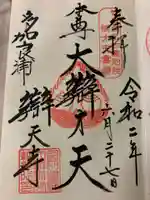 奉拝
令和二年
六月二十七日
本尊
大辯才天
多加良浦
辯天寺